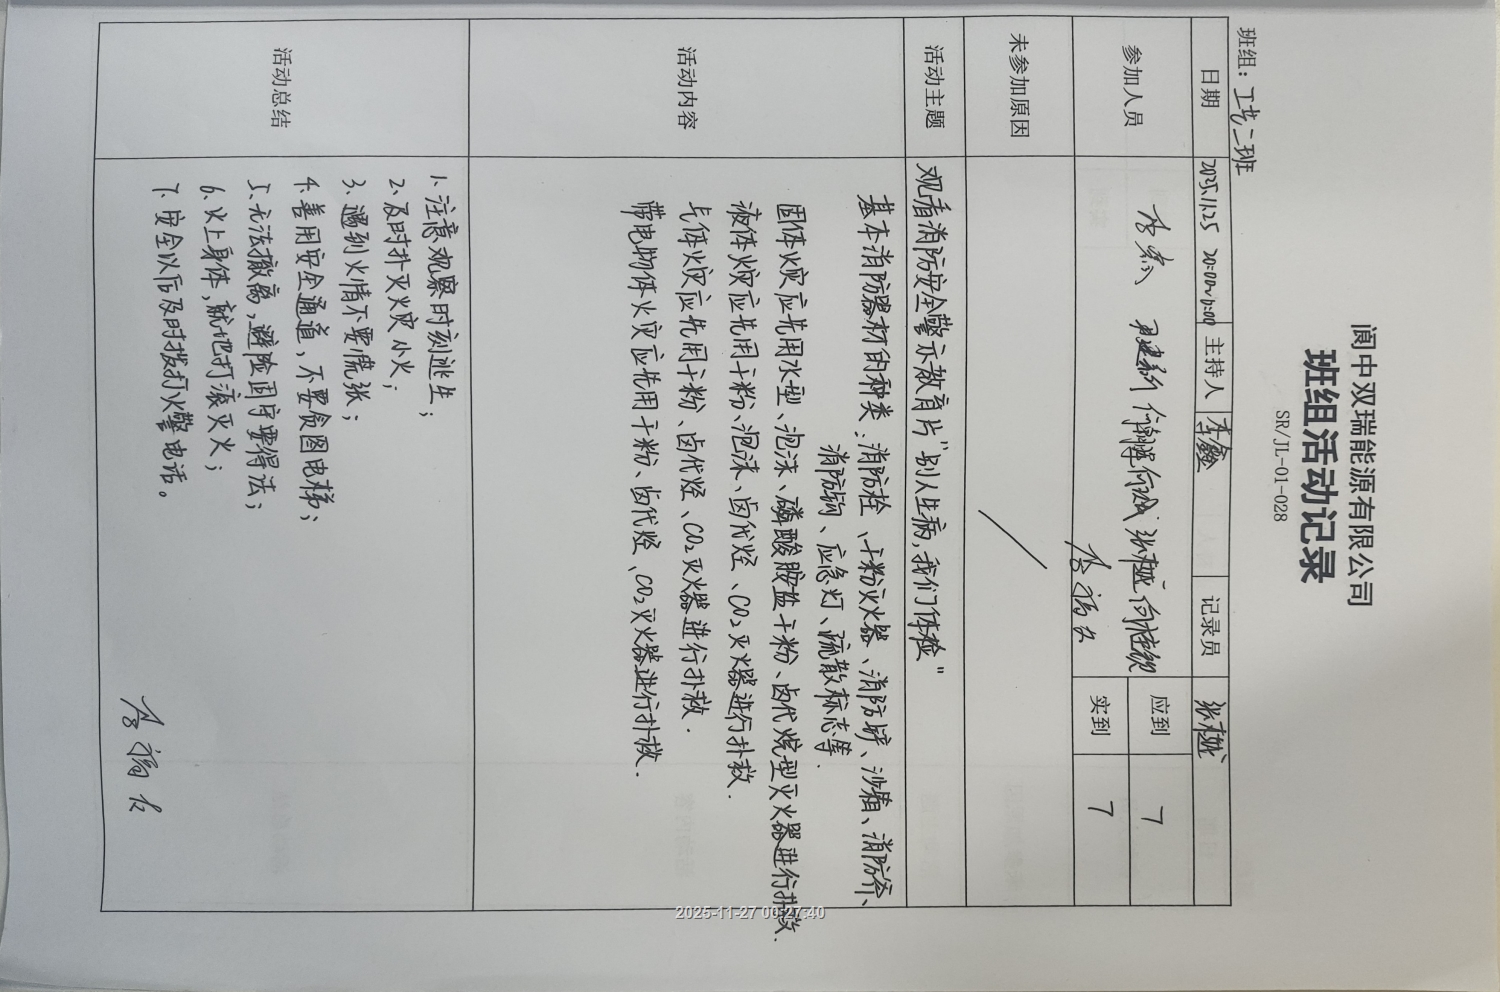 阆中双瑞能源有限公司
班组活动记录
SR/JL-01-028
班组：工艺二班
日期 2025.11.25 20:00~ 主持人 李鑫 记录员 张越
参加人员 张越
应到 7
实到 7
未参加原因 /
活动主题 观看消防安全警示教育片"别人生病,我们体检"
活动内容
基本消防器材的种类：消防栓、干粉灭火器、消防铲、沙箱、消防斧、
消防钩、应急灯、疏散标志等.
固体火灾应先用水型、泡沫、磷酸胺盐干粉、卤代烷型灭火器进行扑救.
液体火灾应先用干粉、泡沫、卤代烃、CO₂灭火器进行扑救.
气体火灾应先用干粉、卤代烃、CO₂灭火器进行扑救.
带电物体火灾应先用干粉、卤代烃、CO₂灭火器进行扑救.
活动总结
1、注意观察时刻逃生；
2、及时扑灭火灾小火；
3、遇到火情不要慌张；
4、善用安全通道，不要贪图电梯；
5、无法撤离，避险固守要得法；
6、火上身体，就地打滚灭火；
7、安全以后及时拨打火警电话。
2025-11-27 00:27:40